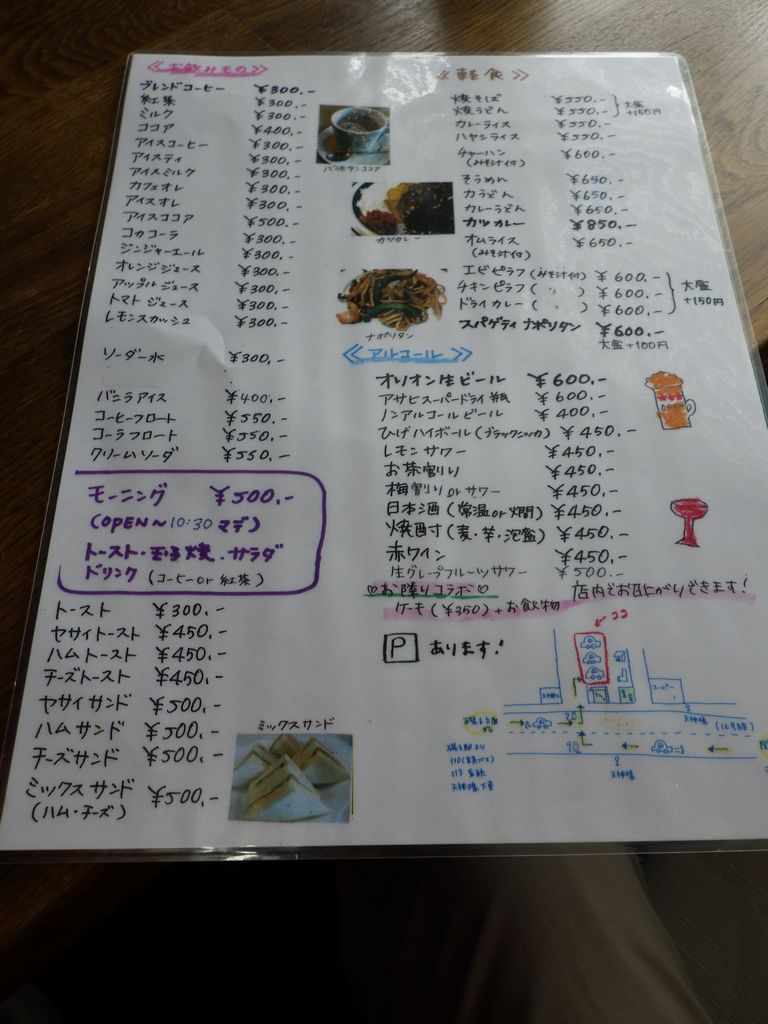 ≪お飲みもの≫
ブレンドコーヒー ¥300.-
紅茶 ¥300.-
ミルク ¥300.-
ココア ¥400.-
アイスコーヒー ¥300.-
アイスティ ¥300.-
アイスミルク ¥300.-
カフェオレ ¥300.-
アイスオレ ¥300.-
アイスココア ¥500.-
コカコーラ ¥300.-
ジンジャーエール ¥300.-
オレンジジュース ¥300.-
アップルジュース ¥300.-
トマトジュース ¥300.-
レモンスカッシュ ¥300.-
ソーダー水 ¥300.-
バニラアイス ¥400.-
コーヒーフロート ¥550.-
コーラフロート ¥550.-
クリームソーダ ¥550.-
モーニング ¥500.-
(OPEN～10:30マデ)
トースト・玉子焼・サラダ
ドリンク(コーヒーor紅茶)
トースト ¥300.-
ヤサイトースト ¥450.-
ハムトースト ¥450.-
チーズトースト ¥450.-
ヤサイサンド ¥500.-
ハムサンド ¥500.-
チーズサンド ¥500.-
ミックスサンド ¥500.-
(ハム・チーズ)
ミックスサンド
バンホーテンココア
カツカレー
ナポリタン
≪軽食≫
焼そば ¥550.-
焼うどん ¥550.-
大盛+150円
カレーライス ¥550.-
ハヤシライス ¥550.-
チャーハン ¥600.-
(みそ汁付)
そうめん ¥650.-
力うどん ¥650.-
カレーうどん ¥650.-
カツカレー ¥850.-
オムライス ¥650.-
(みそ汁付)
エビピラフ(みそ汁付) ¥600.-
チキンピラフ( 〃 ) ¥600.-
ドライカレー( 〃 ) ¥600.-
大盛+150円
スパゲティナポリタン ¥600.-
大盛+100円
≪アルコール≫
オリオン生ビール ¥600.-
アサヒスーパードライ瓶 ¥600.-
ノンアルコールビール ¥400.-
ひげハイボール(ブラックニッカ) ¥450.-
レモンサワー ¥450.-
お茶割り ¥450.-
梅割りorサワー ¥450.-
日本酒(常温or燗) ¥450.-
焼酎(麦・芋・泡盛) ¥450.-
赤ワイン ¥450.-
生グレープフルーツサワー ¥500.-
♡お隣りコラボ♡ 店内でお召しあがりできます!
ケーキ(¥350)+お飲物
P あります!
ココ
スーパー
天神橋
(16号線)
天神橋
天神橋下車